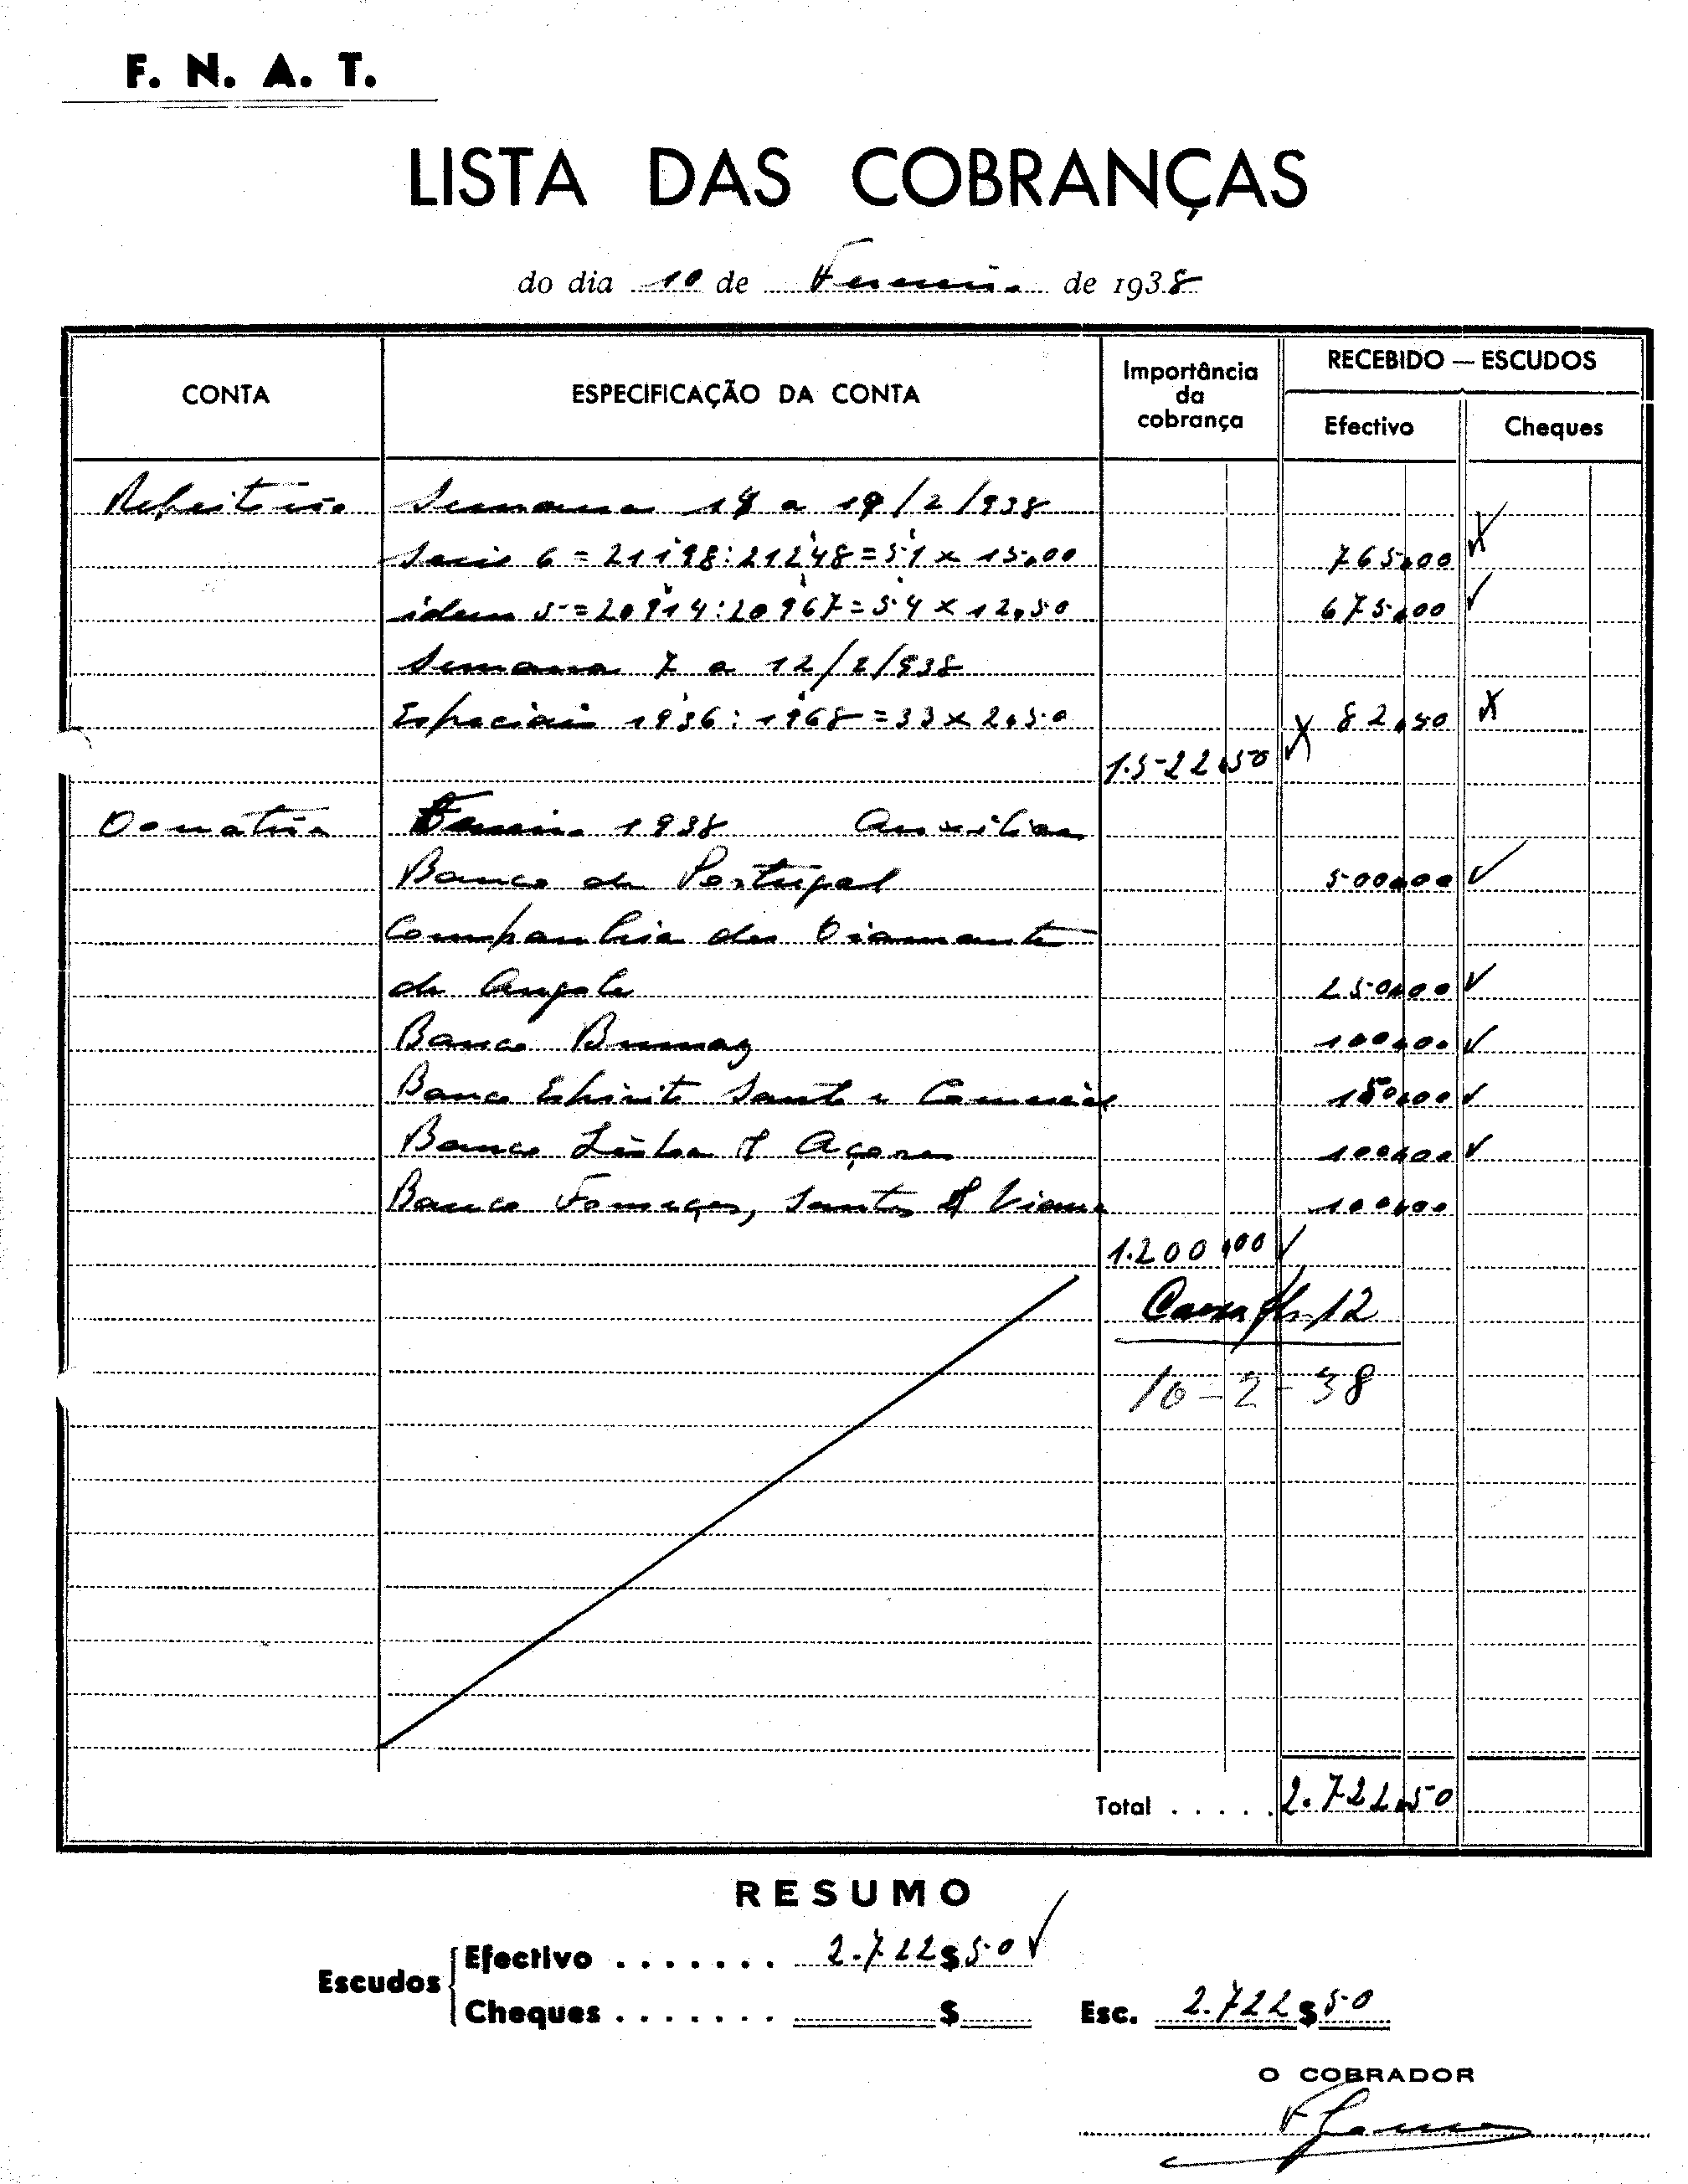 F. N. A. T.
LISTA DAS COBRANÇAS
do dia 10 de Fevereiro de 1938
CONTA ESPECIFICAÇÃO DA CONTA Importância da cobrança RECEBIDO — ESCUDOS
Efectivo Cheques
Refeitório Semana 14 a 19/2/938
Serie 6 = 21198:21248 = 51 x 15,00 765,00
idem 5 = 20914:20967 = 54 x 12,50 675,00
Semana 7 a 12/2/938
Especiais 1936:1968 = 33 x 2,50 82,50
1.522,50
Donativo Fevereiro 1938 Auxiliar
Banco de Portugal 500,00
Companhia dos Diamantes
de Angola 250,00
Banco Burnay 100,00
Banco Espirito Santo e Comercial 150,00
Banco Lisboa & Açores 100,00
Banco Fonsecas, Santos & Viana 100,00
1.200,00
Caixa fl. 12
10-2-38
Total ..... 2.722,50
RESUMO
Escudos Efectivo ....... 2.722$50
Cheques ....... $ Esc. 2.722$50
O COBRADOR